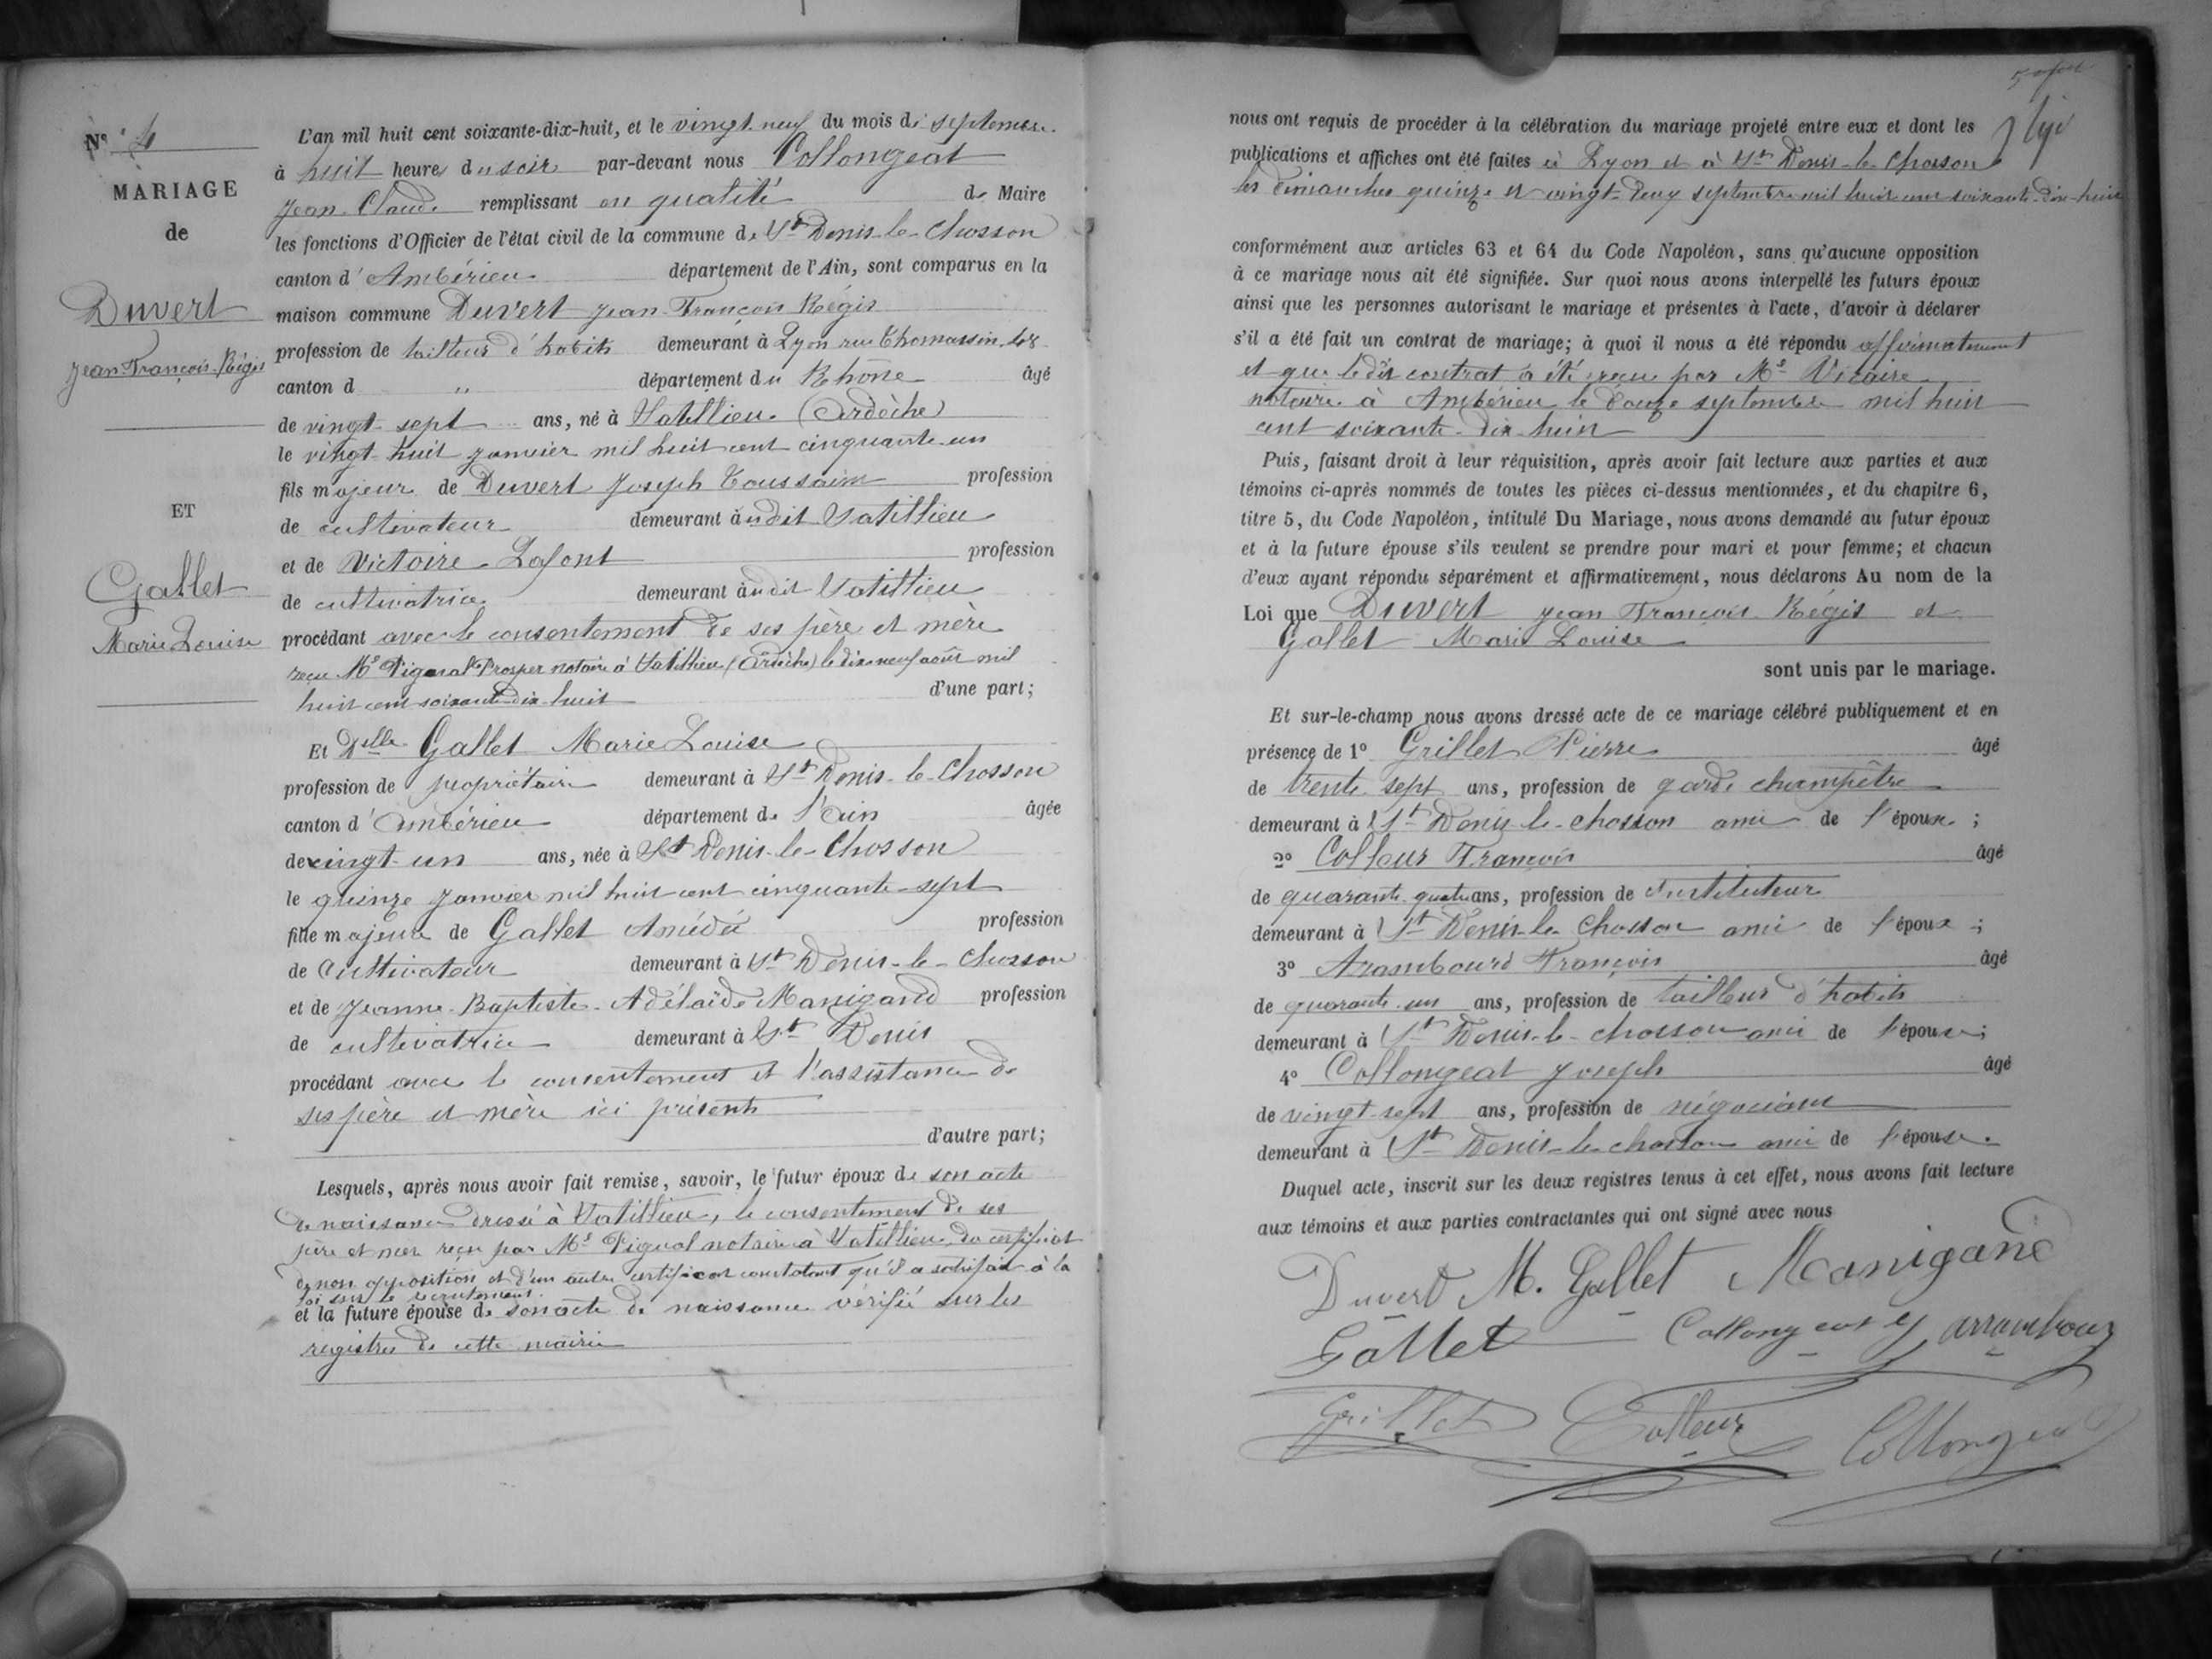 N° 4
MARIAGE
de
Duvert
Jean François Régis
ET
Gallet
Marie Louise
L'an mil huit cent soixante-dix-huit, et le vingt neuf du mois de septembre
à huit heures du soir par-devant nous Collongeat
Jean Claude remplissant en qualité de Maire
les fonctions d'Officier de l'état civil de la commune de St Denis-le-Chosson
canton d'Ambérieu département de l'Ain, sont comparus en la
maison commune Duvert Jean François Régis
profession de tailleur d'habits demeurant à Lyon rue Thomassin 48
canton d " département du Rhône âgé
de vingt-sept ans, né à Satillieu (Ardèche)
le vingt-huit janvier mil huit cent cinquante-un
fils majeur de Duvert Joseph Toussaint profession
de cultivateur demeurant audit Satillieu
et de Victoire Lafont profession
de cultivatrice demeurant audit Satillieu
procédant avec le consentement de ses père et mère
reçu Me Pignal Prosper notaire à Satillieu (Ardèche) le dix-neuf août mil
huit cent soixante-dix-huit d'une part;
Et Delle Gallet Marie Louise
profession de propriétaire demeurant à St Denis-le-Chosson
canton d'Ambérieu département de l'Ain âgée
de vingt-un ans, née à St Denis-le-Chosson
le quinze janvier mil huit cent cinquante-sept
fille majeure de Gallet Amédé profession
de cultivateur demeurant à St Denis-le-Chosson
et de Jeanne-Baptiste-Adélaïde Manigand profession
de cultivatrice demeurant à St Denis
procédant avec le consentement et l'assistance de
ses père et mère ici présents
d'autre part;
Lesquels, après nous avoir fait remise, savoir, le futur époux de son acte
de naissance dressé à Satillieu, le consentement de ses
père et mère reçu par Me Pignal notaire à Satillieu, du certificat
de non opposition et d'un autre certificat constatant qu'il a satisfait à la
loi sur le recrutement.
et la future épouse de son acte de naissance vérifié sur les
registres de cette mairie
nous ont requis de procéder à la célébration du mariage projeté entre eux et dont les
publications et affiches ont été faites à Lyon et à St Denis-le-Chosson
les dimanches quinze et vingt-deux septembre mil huit cent soixante-dix-huit
conformément aux articles 63 et 64 du Code Napoléon, sans qu'aucune opposition
à ce mariage nous ait été signifiée. Sur quoi nous avons interpellé les futurs époux
ainsi que les personnes autorisant le mariage et présentes à l'acte, d'avoir à déclarer
s'il a été fait un contrat de mariage; à quoi il nous a été répondu affirmativement
et que ledit contrat a été reçu par Me Vicaire
notaire à Ambérieu le douze septembre mil huit
cent soixante-dix-huit
Puis, faisant droit à leur réquisition, après avoir fait lecture aux parties et aux
témoins ci-après nommés de toutes les pièces ci-dessus mentionnées, et du chapitre 6,
titre 5, du Code Napoléon, intitulé Du Mariage, nous avons demandé au futur époux
et à la future épouse s'ils veulent se prendre pour mari et pour femme; et chacun
d'eux ayant répondu séparément et affirmativement, nous déclarons Au nom de la
Loi que Duvert Jean François Régis et
Gallet Marie Louise
sont unis par le mariage.
Et sur-le-champ nous avons dressé acte de ce mariage célébré publiquement et en
présence de 1° Grillet Pierre âgé
de trente sept ans, profession de garde champêtre
demeurant à St Denis-le-Chosson ami de l'épouse;
2° Colleur François âgé
de quarante quatre ans, profession de instituteur
demeurant à St Denis-le-Chosson ami de l'époux;
3° Arambourd François âgé
de quarante un ans, profession de tailleur d'habits
demeurant à St Denis-le-Chosson ami de l'épouse;
4° Collongeat Joseph âgé
de vingt-sept ans, profession de négociant
demeurant à St Denis-le-Chosson ami de l'épouse.
Duquel acte, inscrit sur les deux registres tenus à cet effet, nous avons fait lecture
aux témoins et aux parties contractantes qui ont signé avec nous
Duvert M. Gallet Manigand
Gallet Collongeat J arrambour
Grillet Colleur Collongeat